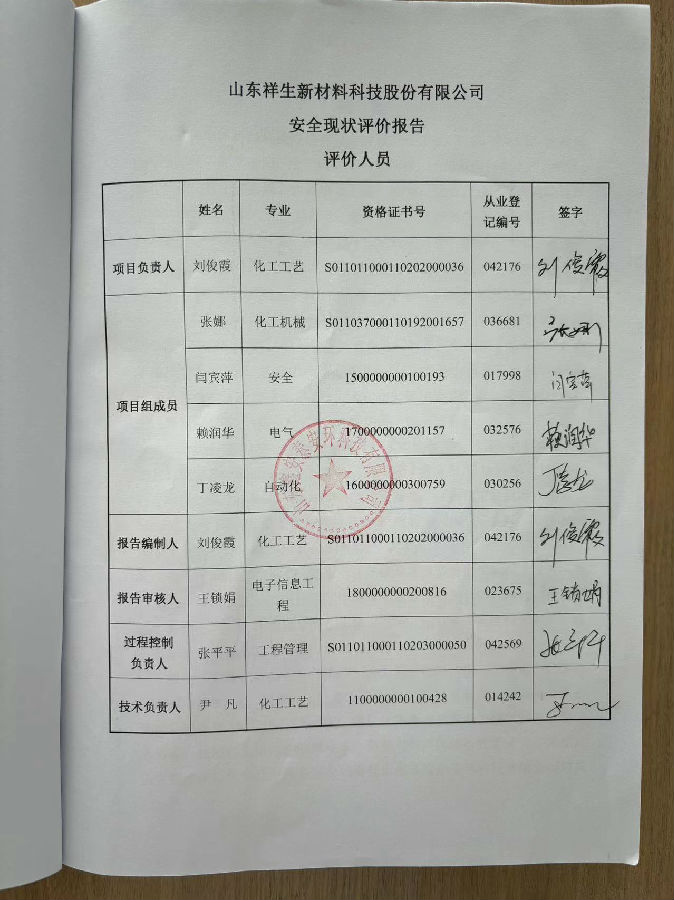 山东祥生新材料科技股份有限公司
安全现状评价报告
评价人员
姓名 专业 资格证书号 从业登记编号 签字
项目负责人 刘俊霞 化工工艺 S011011000110202000036 042176 刘俊霞
项目组成员 张娜 化工机械 S011037000110192001657 036681 张娜
闫宾萍 安全 1500000000100193 017998 闫宾萍
赖润华 电气 1700000000201157 032576 赖润华
丁凌龙 自动化 1600000000300759 030256 丁凌龙
报告编制人 刘俊霞 化工工艺 S011011000110202000036 042176 刘俊霞
报告审核人 王锁娟 电子信息工程 1800000000200816 023675 王锁娟
过程控制负责人 张平平 工程管理 S011011000110203000050 042569 张平平
技术负责人 尹 凡 化工工艺 1100000000100428 014242